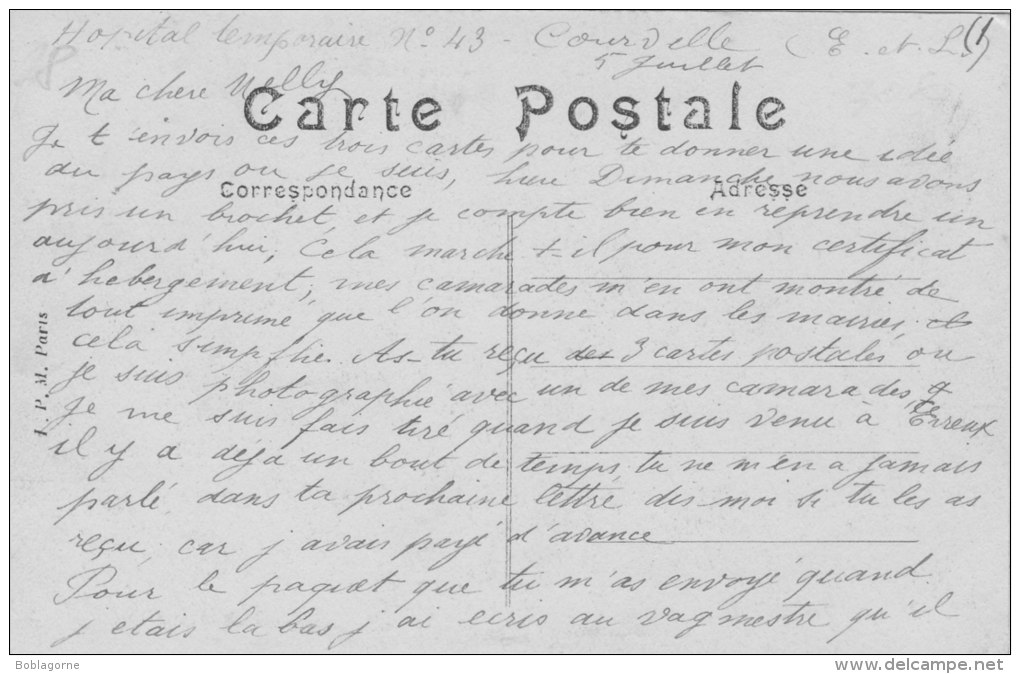 Hopital temporaire N° 43 - Courville (E. et L.)
5 Juillet
Ma chere Nelly
Carte Postale
Je t'envois ces trois cartes pour te donner une idée
du pays ou je suis, hier Dimanche nous avons
Correspondance
Adresse
pris un brochet, et je compte bien en reprendre un
aujourd'hui, Cela marche t-il pour mon certificat
d'hebergement, mes camarades m'en ont montré de
tout imprimé que l'on donne dans les mairies et
cela simpflie. As-tu reçu des 3 cartes postales ou
je suis photographié avec un de mes camarades
je me suis fais tiré quand je suis venu à Evreux
il y a déja un bout de temps, tu ne m'en a jamais
parlé, dans ta prochaine lettre dis moi si tu les as
reçu, car j'avais payé d'avance
Pour le paquet que tu m'as envoyé quand
j'etais la bas j'ai ecris au vagmestre qu'il
P. M. Paris
Boblagorne
www.delcampe.net